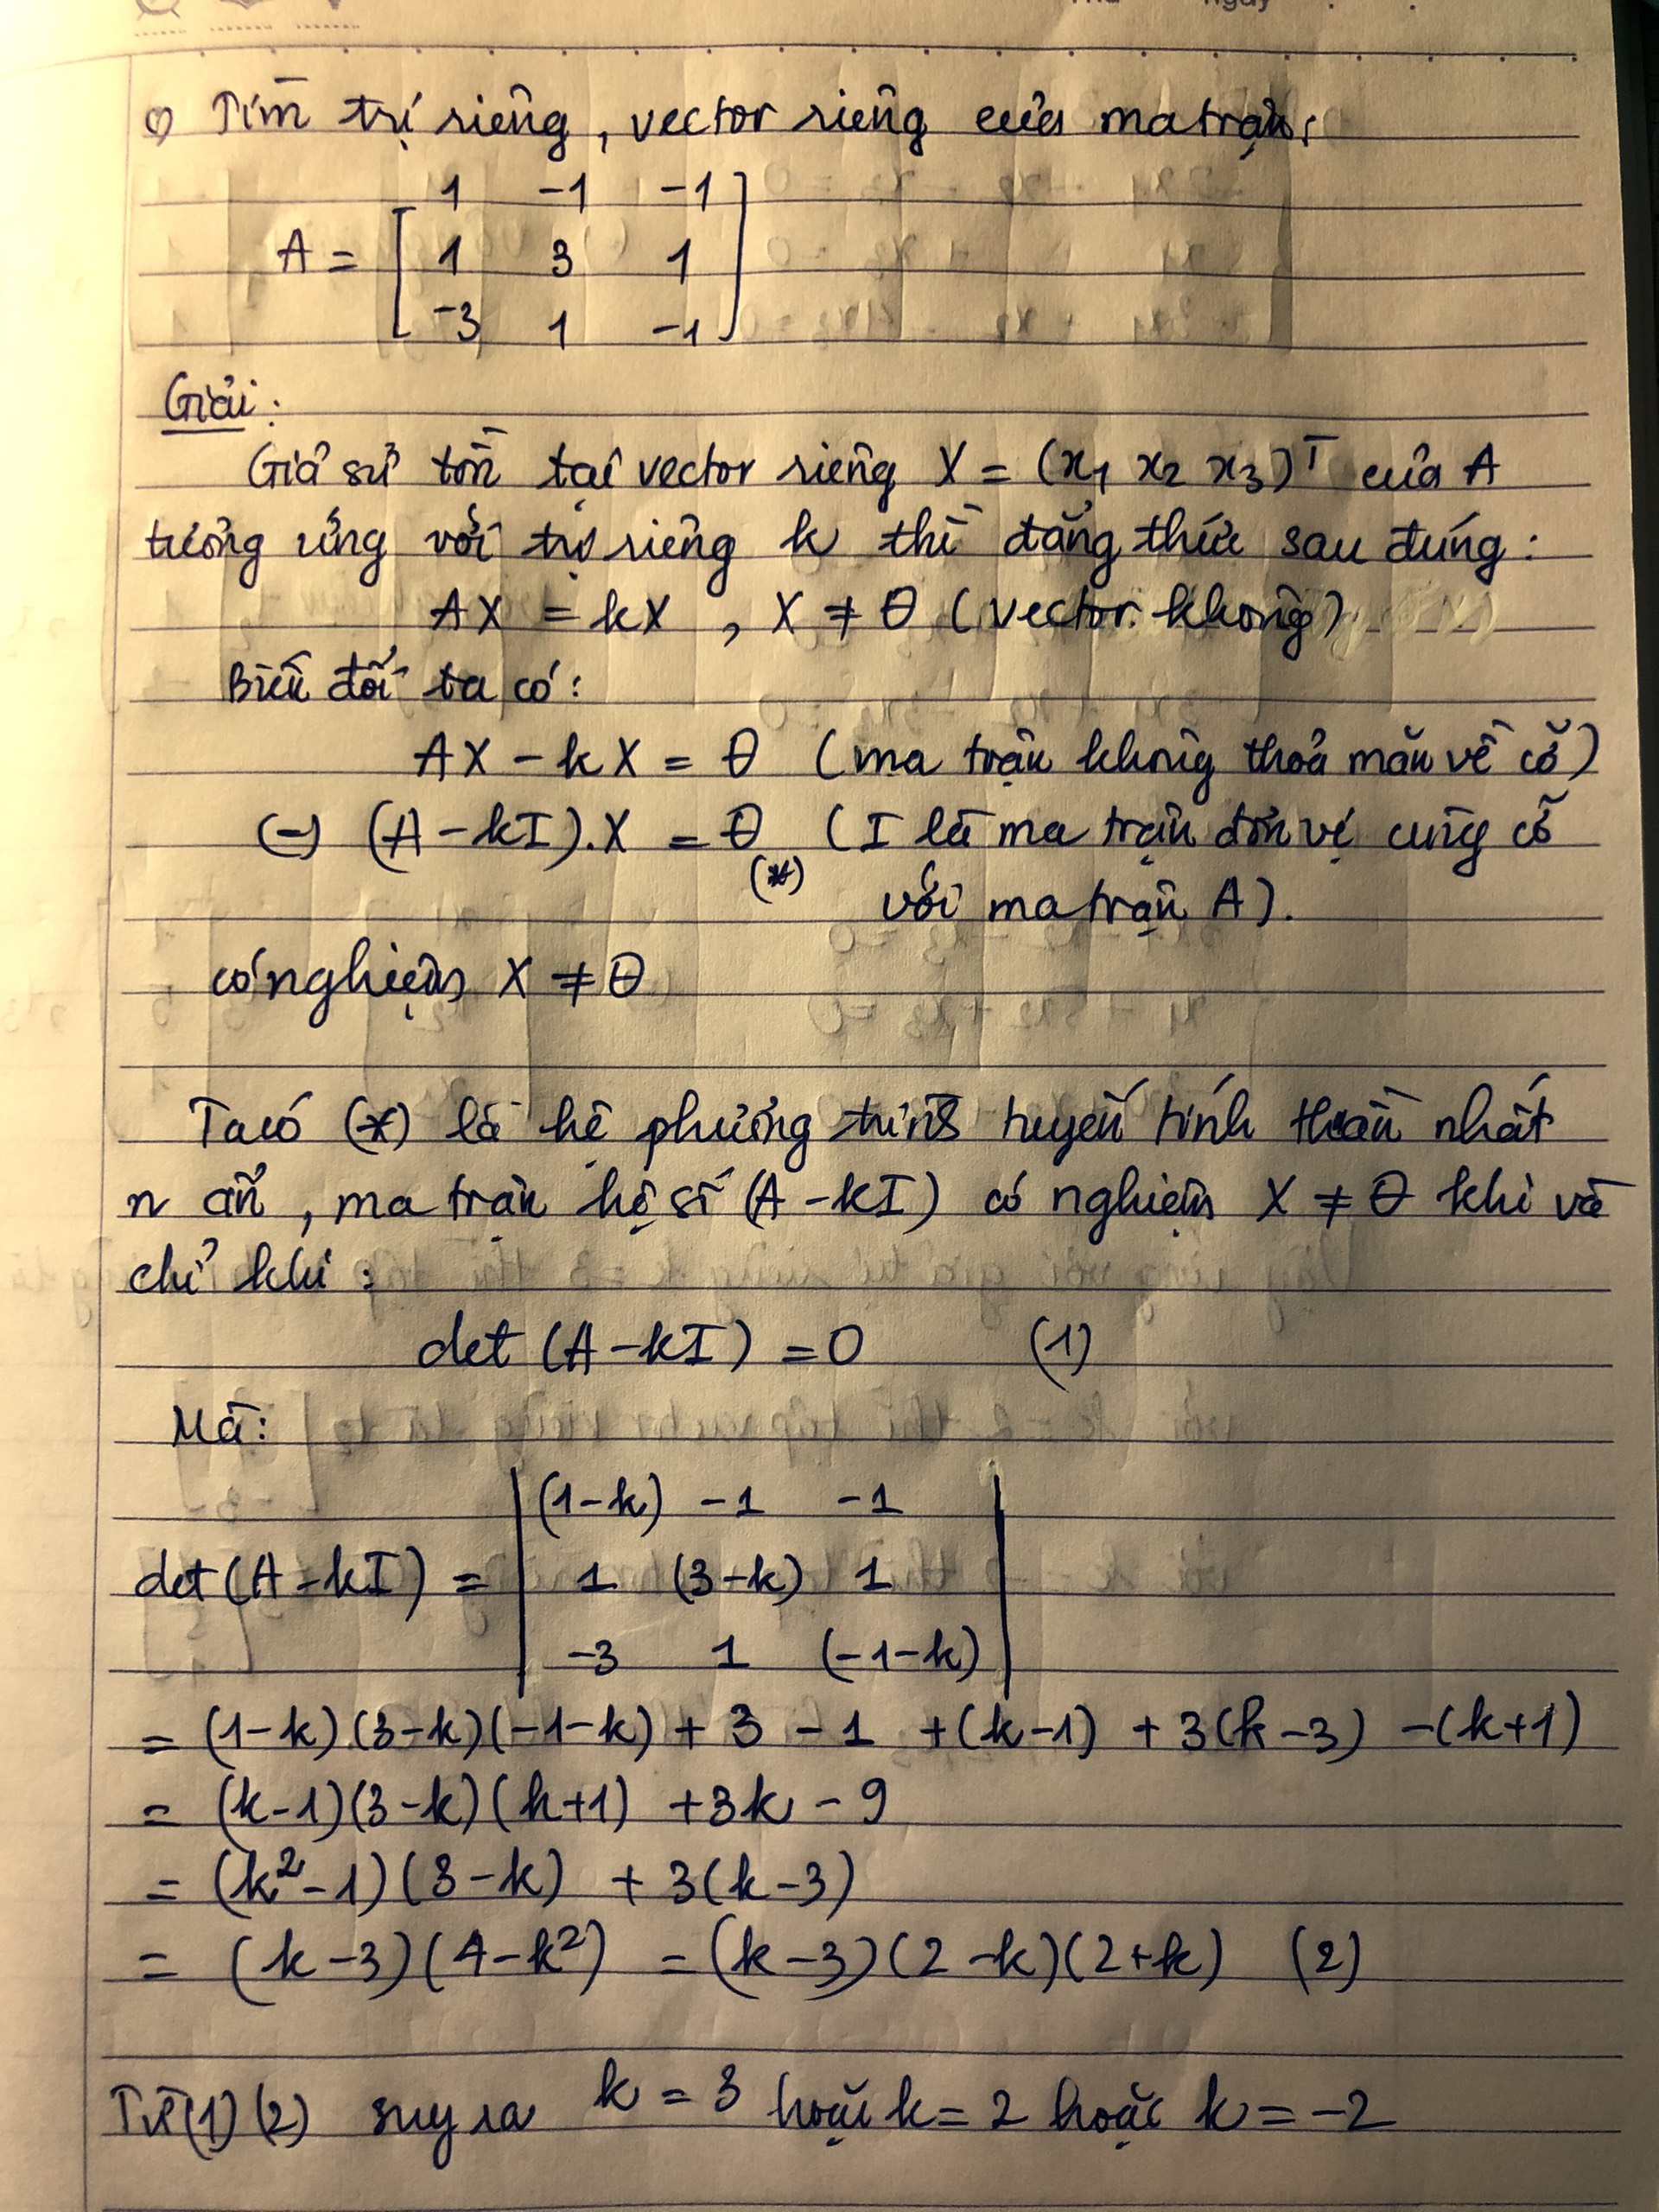 Thứ Ngày
Tìm trị riêng, vector riêng của ma trận:
1 -1 -1
A = [ 1 3 1 ]
-3 1 -1
Giải:
Giả sử tồn tại vector riêng X = (x₁ x₂ x₃)ᵀ của A
tương ứng với trị riêng k thì đẳng thức sau đúng:
AX = kX , X ≠ θ (vector không)
Biến đổi ta có:
AX - kX = θ (ma trận không thoả mãn về cỡ)
(=) (A - kI).X = θ (I là ma trận đơn vị cùng cỡ
(*) với ma trận A).
có nghiệm X ≠ θ
Ta có (*) là hệ phương trình tuyến tính thuần nhất
n ẩn, ma trận hệ số (A - kI) có nghiệm X ≠ θ khi và
chỉ khi:
det (A - kI) = 0 (1)
Mà:
(1-k) -1 -1
det (A - kI) = | 1 (3-k) 1 |
-3 1 (-1-k)
= (1-k)(3-k)(-1-k) + 3 - 1 + (k-1) + 3(k-3) - (k+1)
= (k-1)(3-k)(k+1) + 3k - 9
= (k²-1)(3-k) + 3(k-3)
= (k-3)(4-k²) = (k-3)(2-k)(2+k) (2)
Từ (1)(2) suy ra k = 3 hoặc k = 2 hoặc k = -2